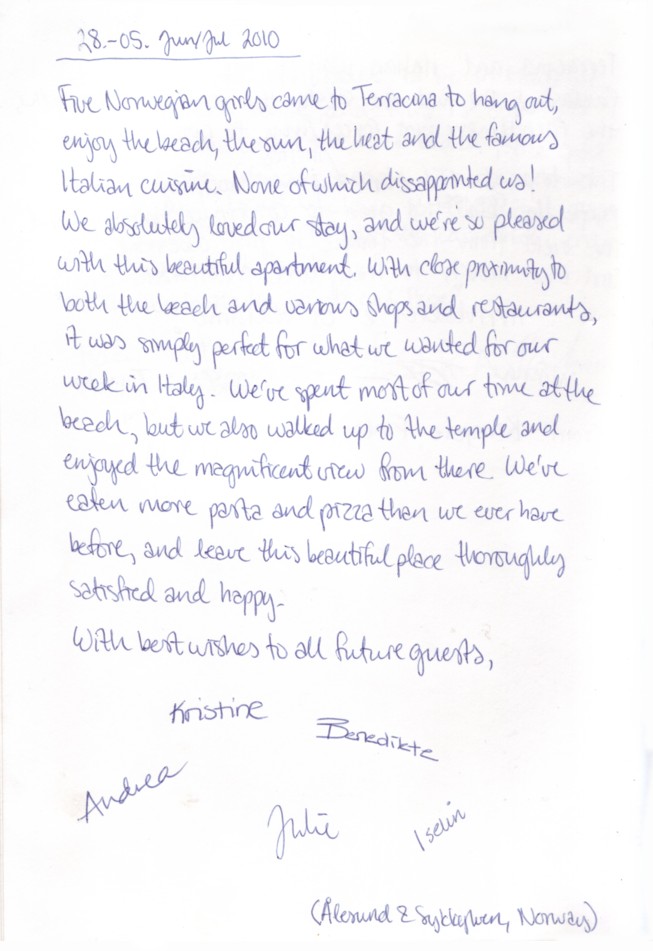 28.-05. Jun/Jul 2010
Five Norwegian girls came to Terracina to hang out,
enjoy the beach, the sun, the heat and the famous
Italian cuisine. None of which dissappointed us!
We absolutely loved our stay, and we're so pleased
with this beautiful apartment. With close proximity to
both the beach and various shops and restaurants,
it was simply perfect for what we wanted for our
week in Italy. We've spent most of our time at the
beach, but we also walked up to the temple and
enjoyed the magnificent view from there. We've
eaten more pasta and pizza than we ever have
before, and leave this beautiful place thoroughly
satisfied and happy.
With best wishes to all future guests,
Kristine
Benedikte
Andrea
Julie
Iselin
(Ålesund & Sykkylven, Norway)